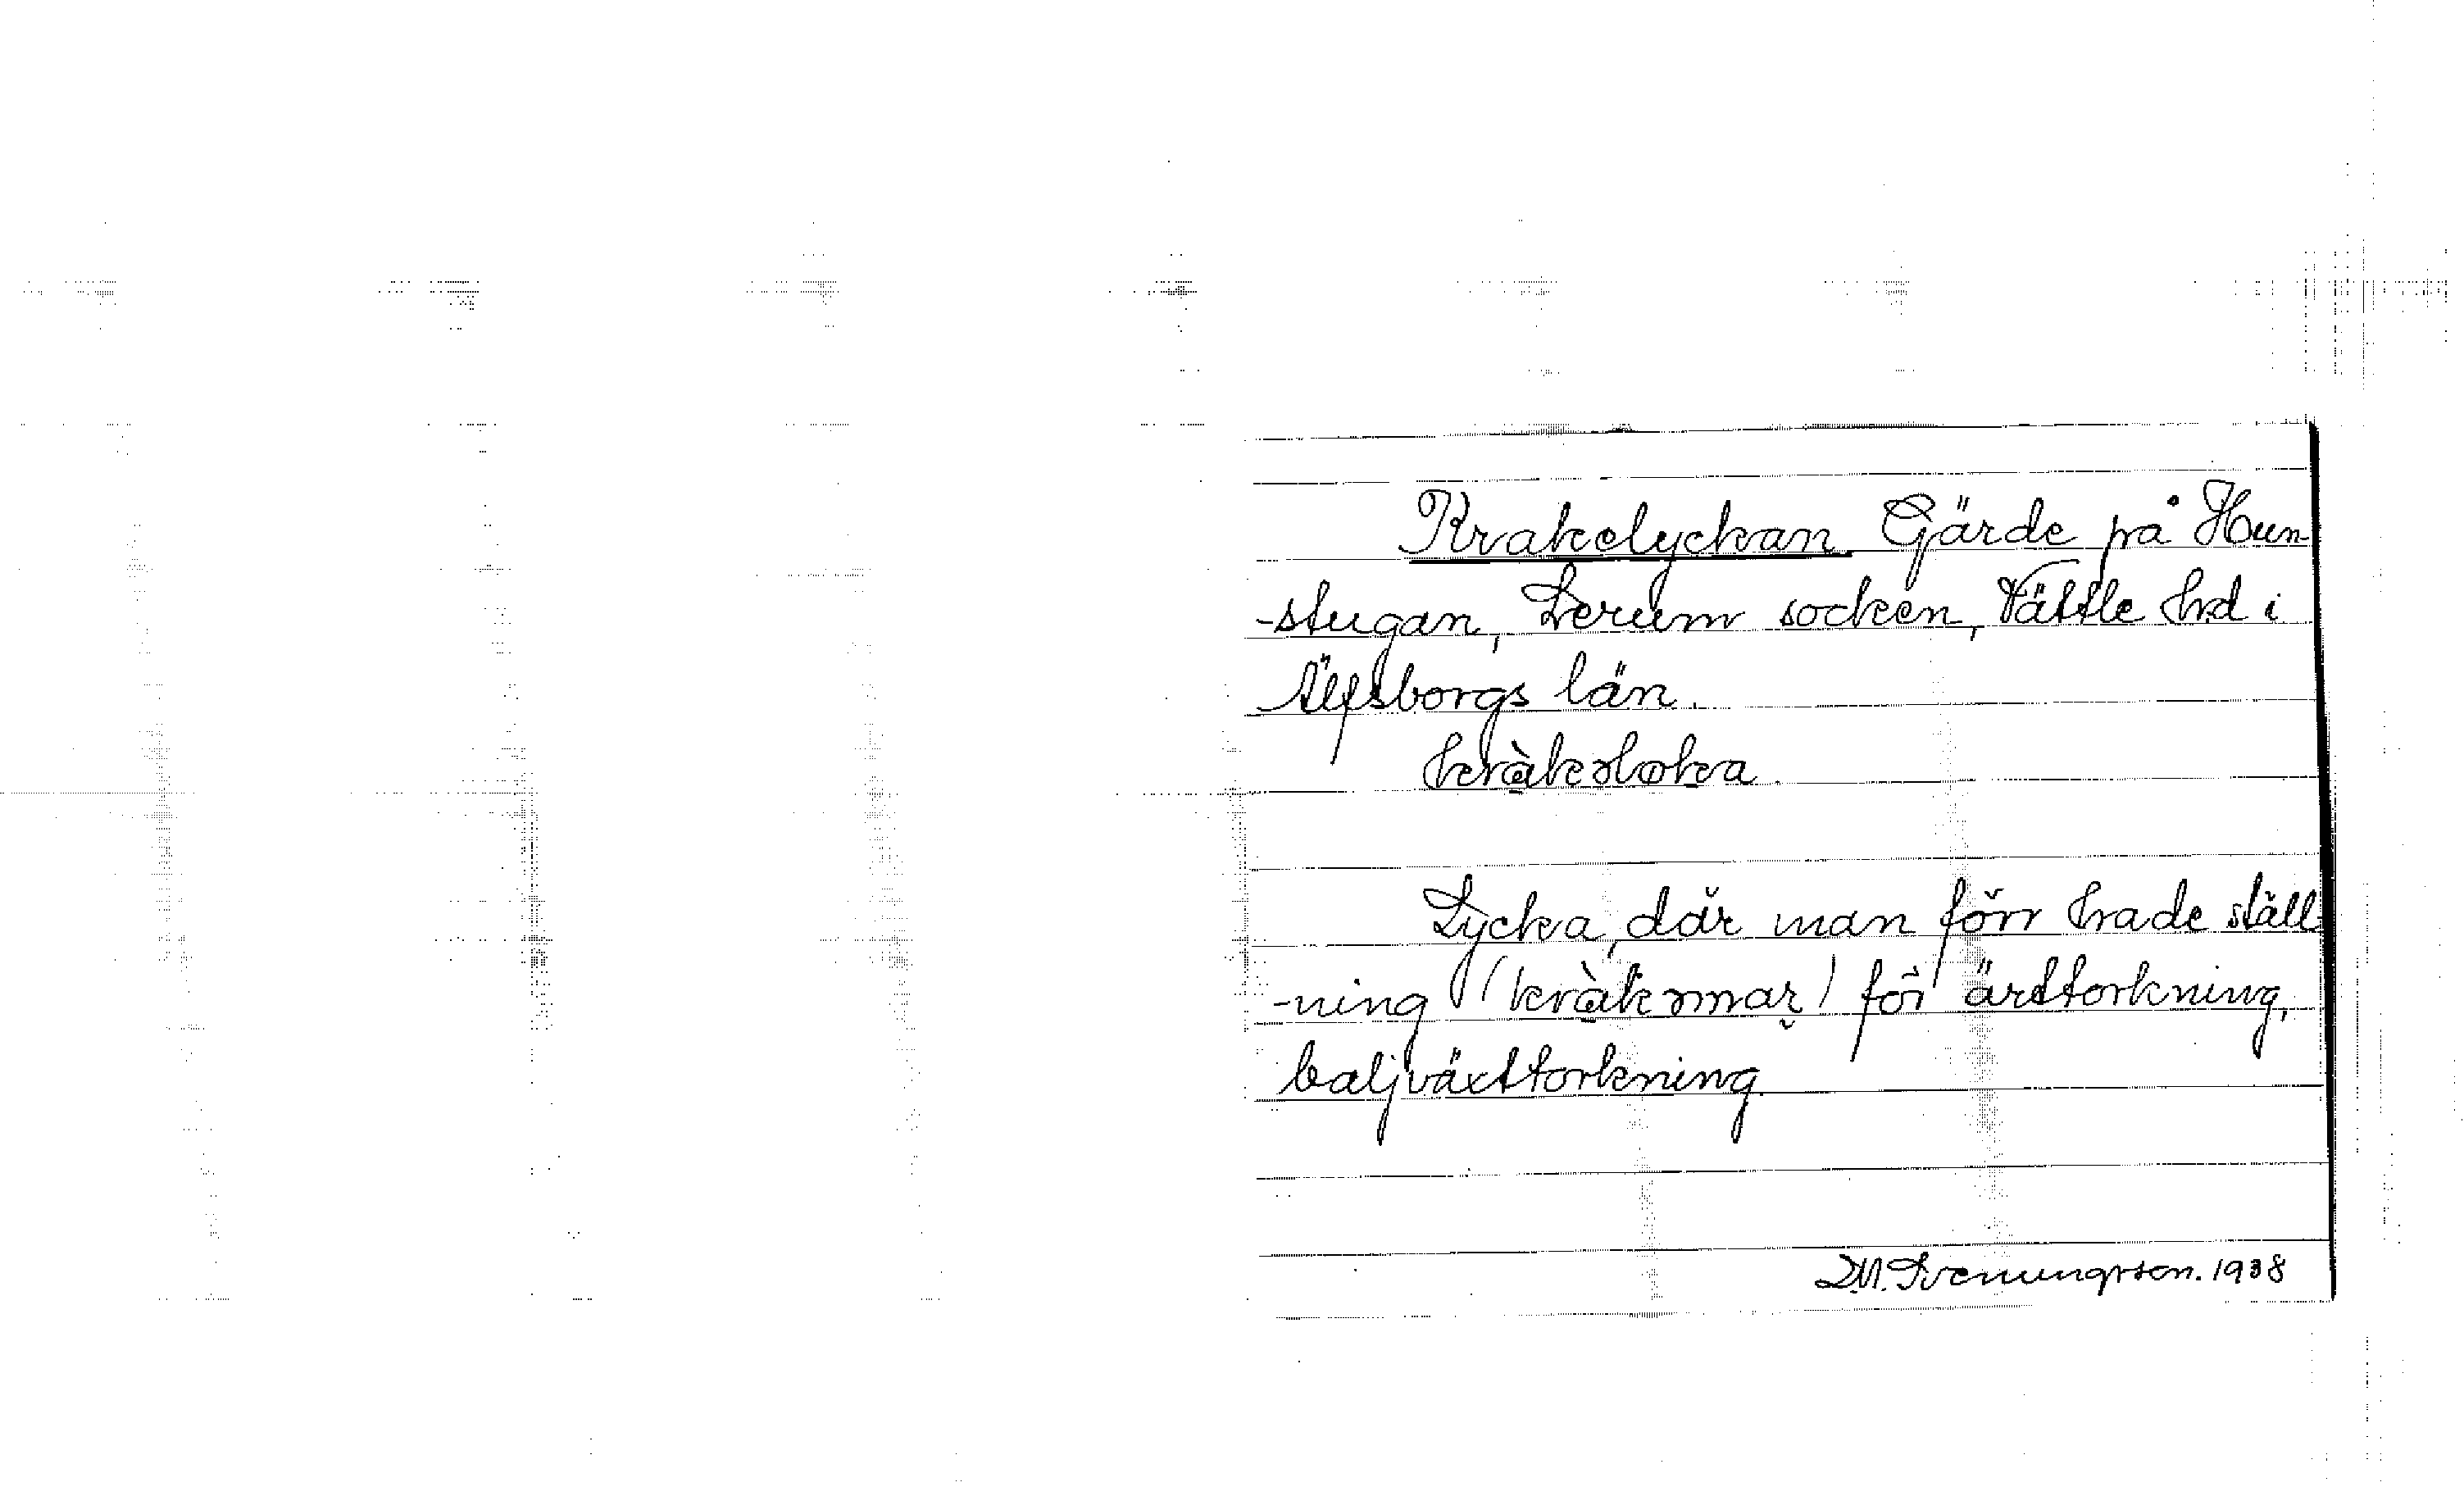 Krakelyckan Gärde på Hun
-stugan, Lerum socken, Vättle hd i
Älfsborgs län.
kràkəloka.
Lycka, där man förr hade ställ
-ning (kràkəmar) för ärttorkning,
baljväxttorkning.
D.N. Svenungsson. 1938